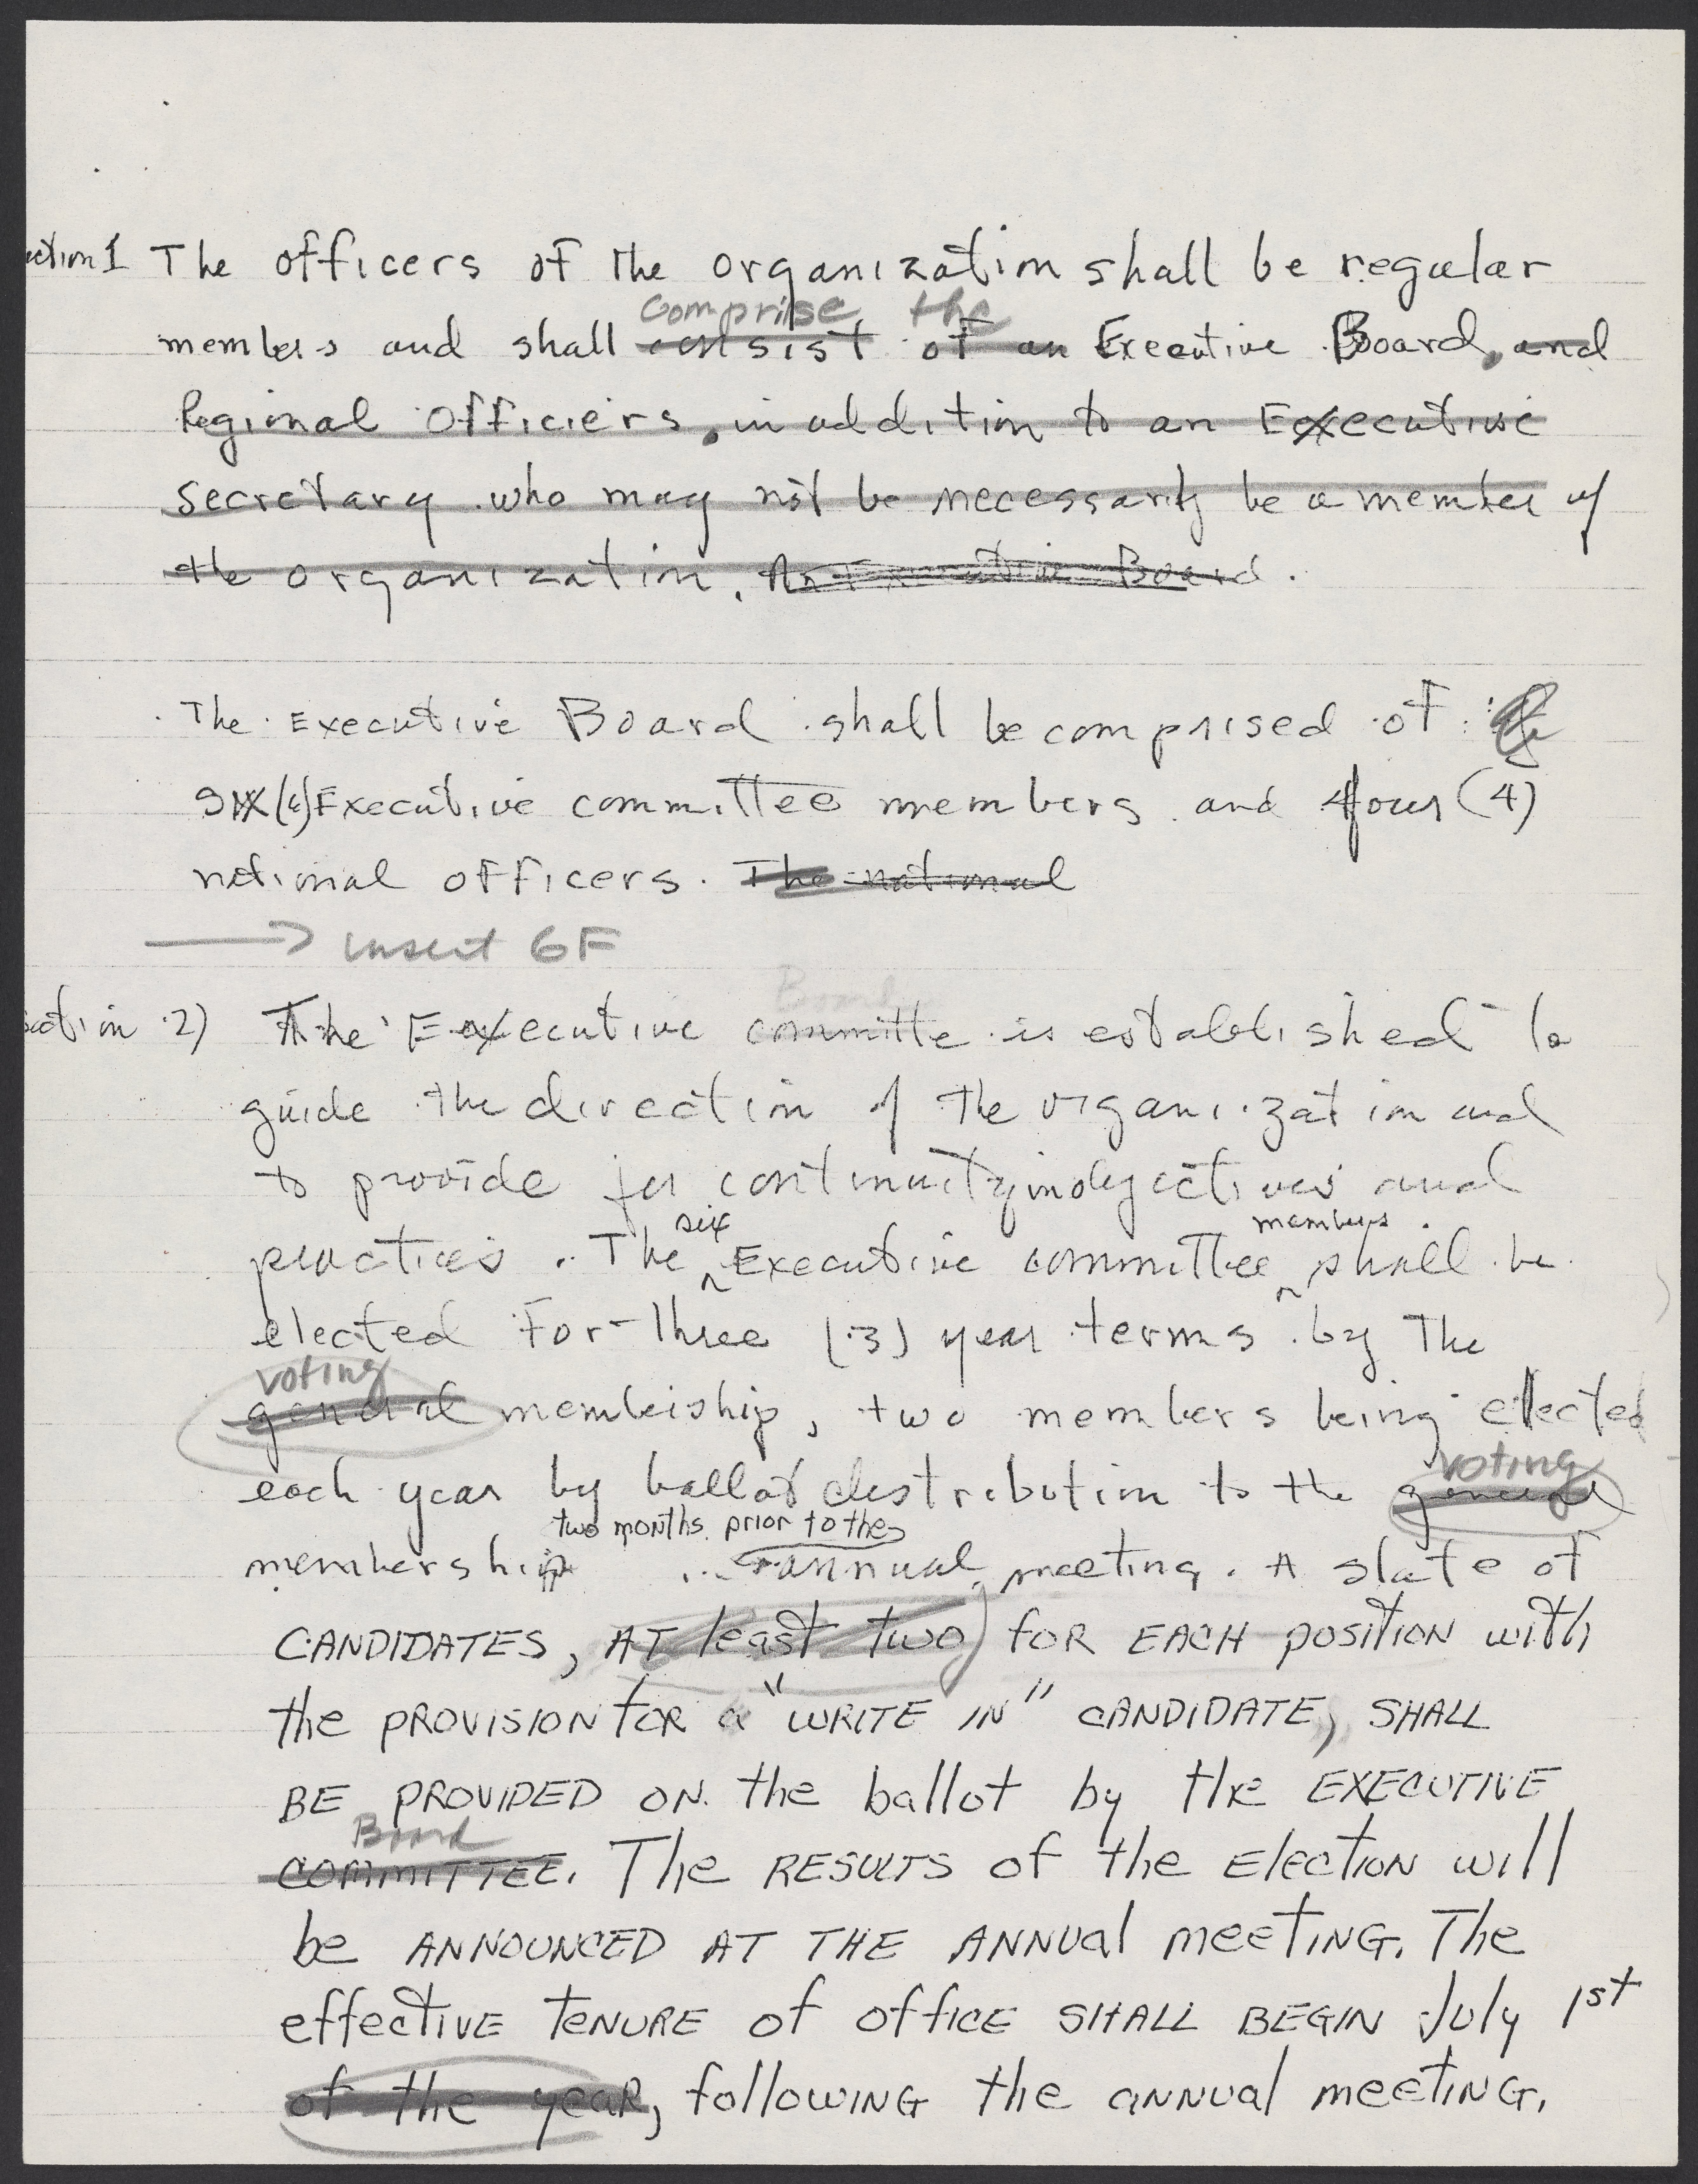 ection 1 The officers of the organization shall be regular
comprise the
members and shall consist of an Executive Board, and
Regional Officiers, in addition to an Executive
Secretary who may not be necessarily be a member of
the organization. An Executive Board.
The Executive Board shall be comprised of
six (6) Executive committee members and four (4)
national officers. The national
→ insert 6F
Board
ection 2) The Executive committe is established to
guide the direction of the organization and
to provide for continuity in objectives and
six members
practices. The ^ Executive committee ^ shall be
elected for three (3) year terms by the
voting
general membership, two members being elected
voting
each year by ballot distribution to the general
two months prior to the
membership annual meeting. A slate of
CANDIDATES, AT least two) for EACH position with
the PROVISION for a "WRITE IN" CANDIDATE, SHALL
BE PROVIDED ON the ballot by the EXECUTIVE
Board
COMMITTEE. The RESULTS of the Election will
be ANNOUNCED AT THE ANNUAL meeTING. The
effective TENURE of office SHALL BEGIN July 1st
of the year, following the annual meeting.